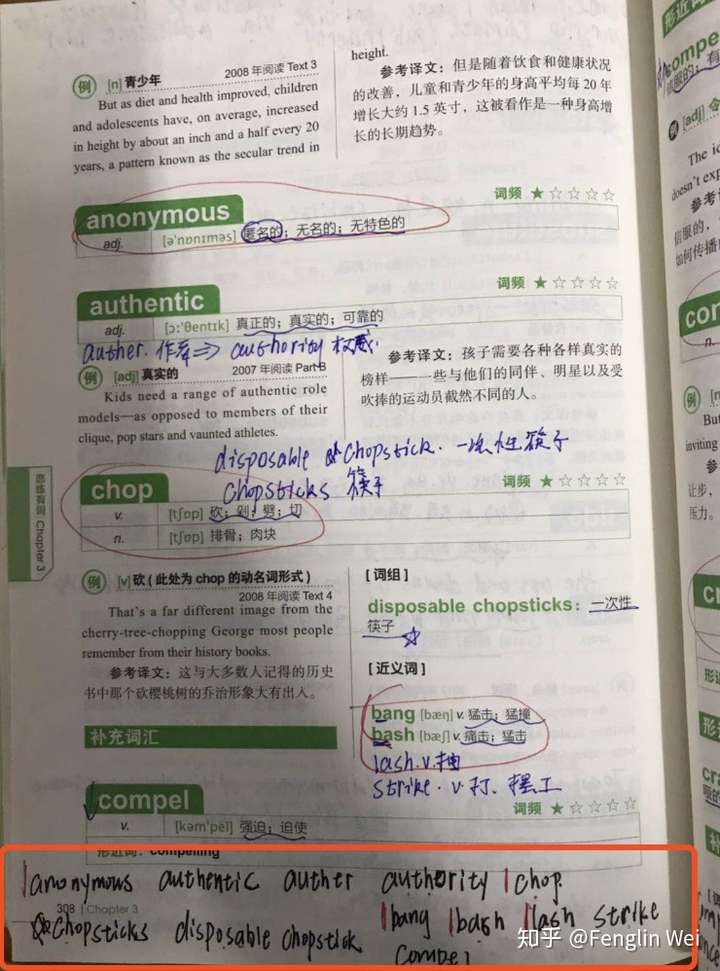 例 [n] 青少年
2008 年阅读 Text 3
But as diet and health improved, children
and adolescents have, on average, increased
in height by about an inch and a half every 20
years, a pattern known as the secular trend in
height.
参考译文：但是随着饮食和健康状况
的改善，儿童和青少年的身高平均每 20 年
增长大约 1.5 英寸，这被看作是一种身高增
长的长期趋势。
anonymous 词频 ★☆☆☆☆
adj. [ə'nɒnɪməs] 匿名的；无名的；无特色的
authentic 词频 ★☆☆☆☆
adj. [ɔː'θentɪk] 真正的；真实的；可靠的
auther. 作者⇒ authority 权威.
例 [adj] 真实的 2007 年阅读 Part B
Kids need a range of authentic role
models—as opposed to members of their
clique, pop stars and vaunted athletes.
参考译文：孩子需要各种各样真实的
榜样——一些与他们的同伴、明星以及受
吹捧的运动员截然不同的人。
disposable chopstick. 一次性筷子
chopsticks 筷子
chop 词频 ★☆☆☆☆
v. [tʃɒp] 砍；剁；劈；切
n. [tʃɒp] 排骨；肉块
恋练有词 Chapter 3
例 [v] 砍（此处为 chop 的动名词形式）
2008 年阅读 Text 4
That's a far different image from the
cherry-tree-chopping George most people
remember from their history books.
参考译文：这与大多数人记得的历史
书中那个砍樱桃树的乔治形象大有出入。
[词组]
disposable chopsticks：一次性
筷子
[近义词]
bang [bæŋ] v. 猛击；猛撞
bash [bæʃ] v. 痛击；猛击
lash. v. 抽
strike. v. 打、摆工
补充词汇
compel 词频 ★☆☆☆☆
v. [kəm'pel] 强迫；迫使
形近词：compelling
anonymous authentic auther authority chop
308 | Chapter 3
chopsticks disposable chopstick bang bash lash strike
compel
知乎 @Fenglin Wei